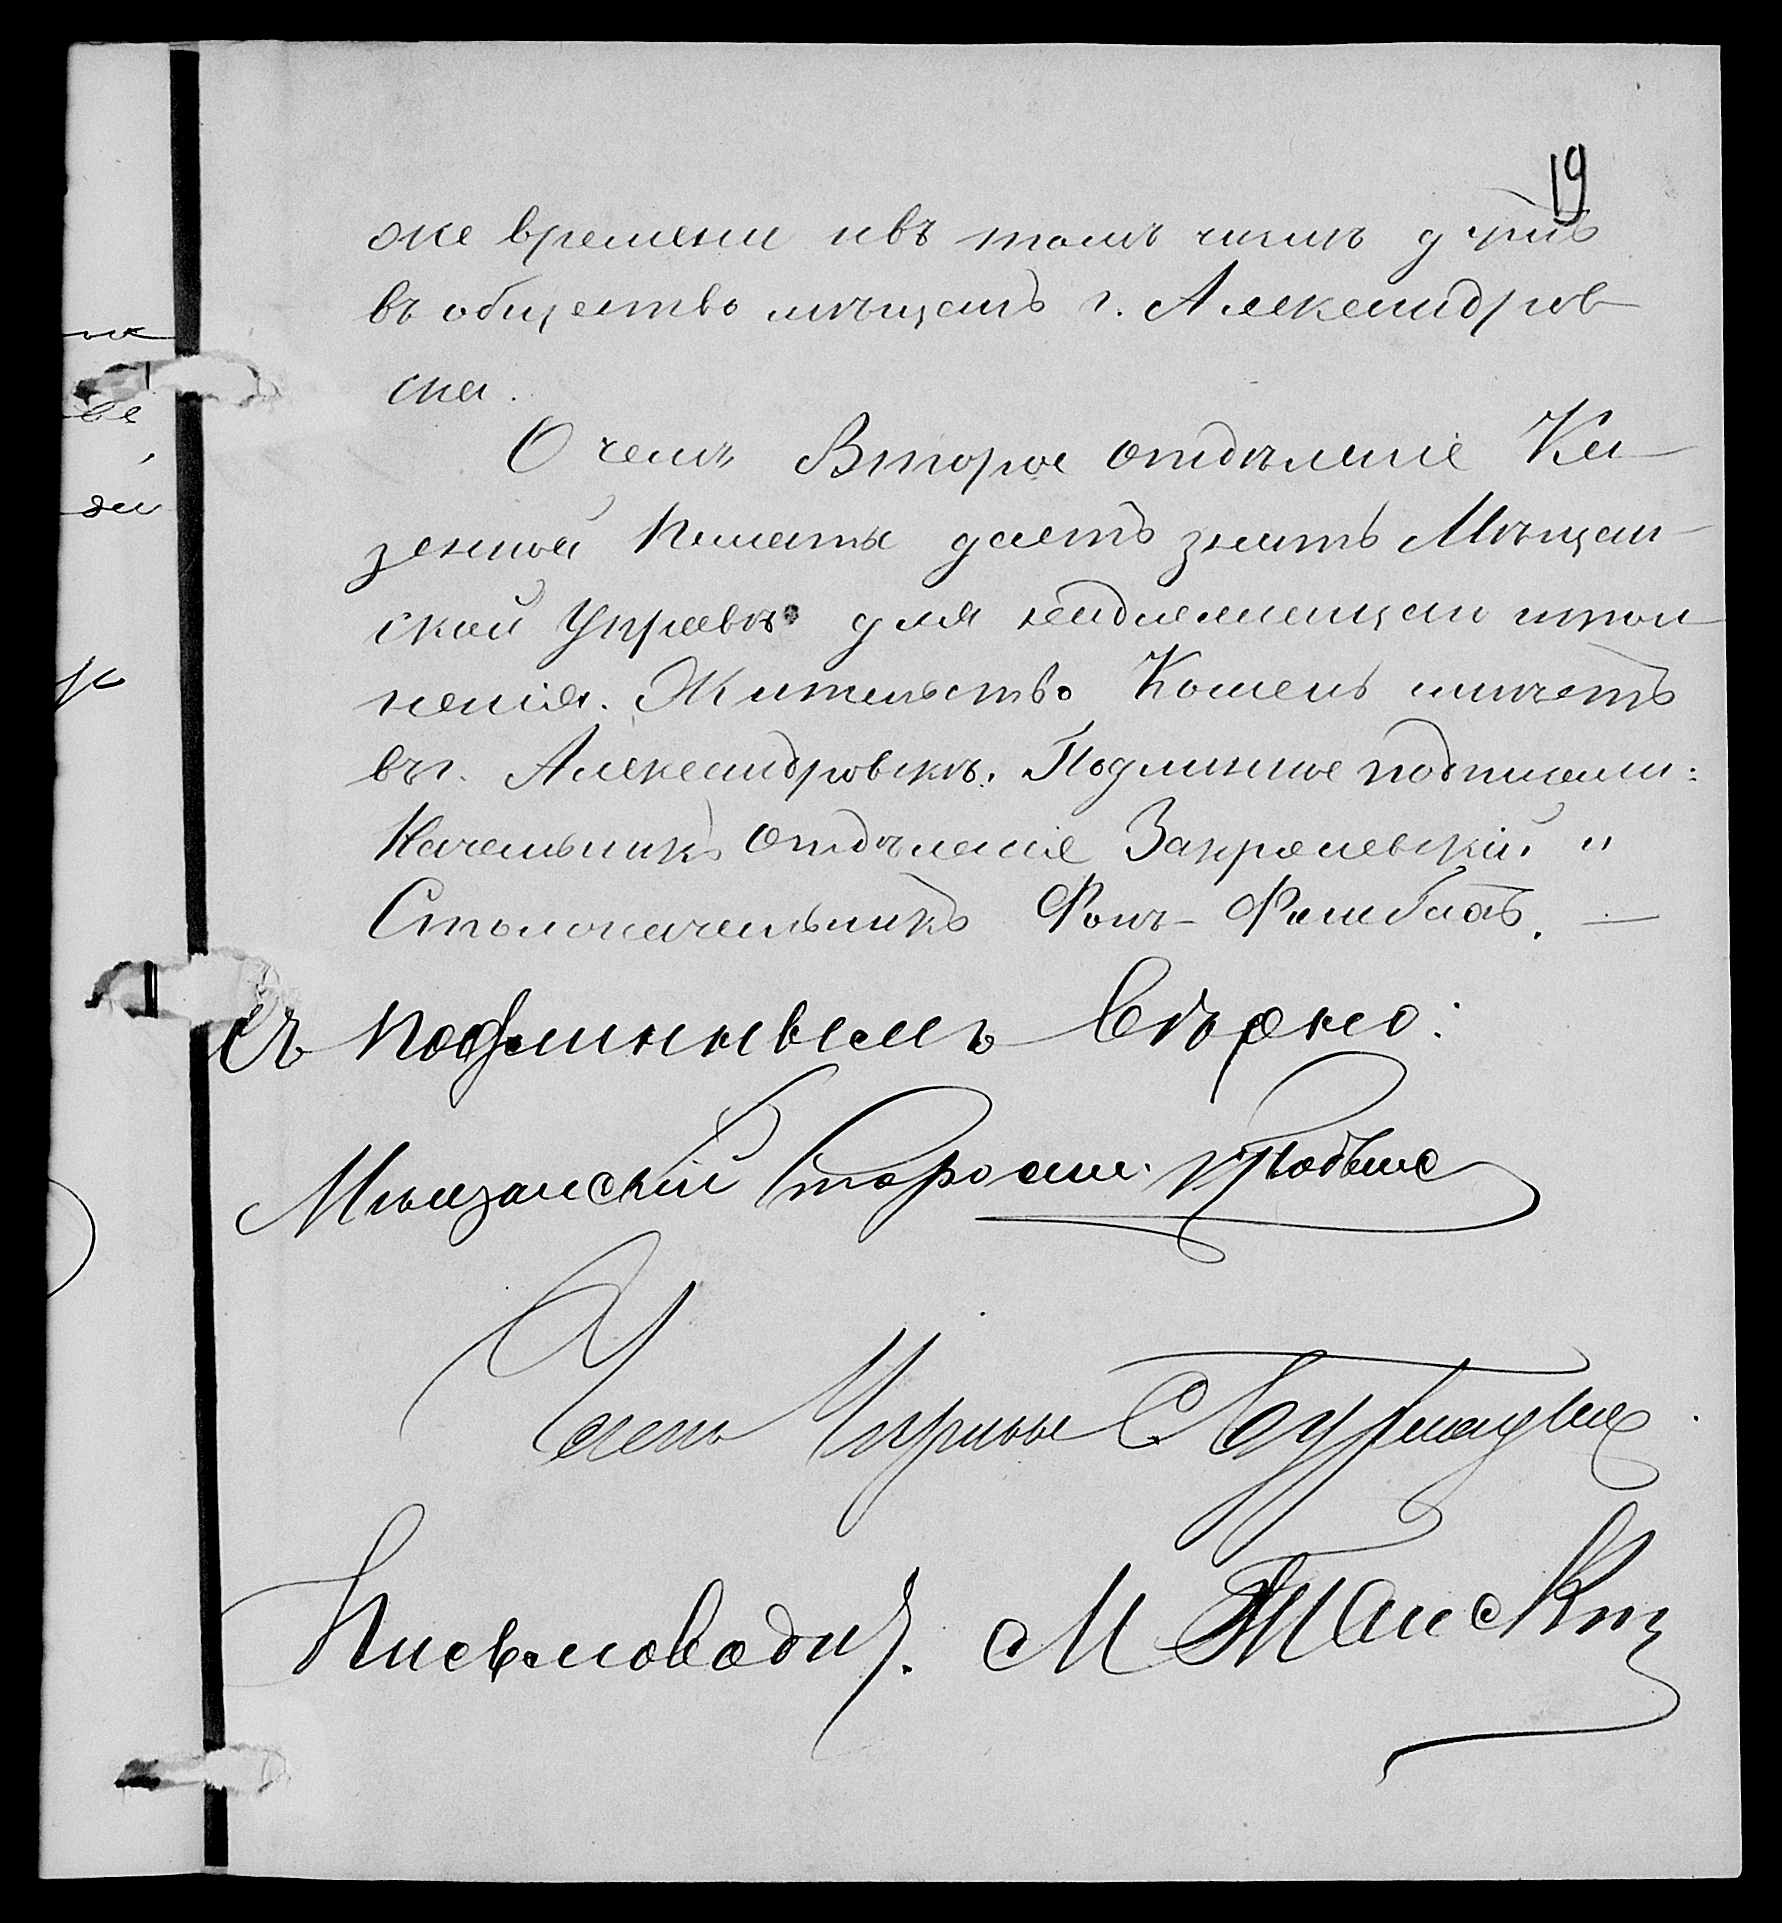 19
же времени и въ томъ числѣ душъ
въ общество мѣщанъ г. Александров-
ска.
О чемъ Второе отдѣленіе Ка-
зенной Палаты даетъ знать Мѣщан-
ской Управѣ для надлежащаго испол-
ненія. Жительство имѣетъ
въ г. Александровскѣ. Подлинное подписали:
Начальникъ отдѣленія Закревскій и
Столоначальникъ Фонъ-
Съ подлиннымъ вѣрно:
Мѣщанскій Староста
Членъ Управы
Письмоводит. М